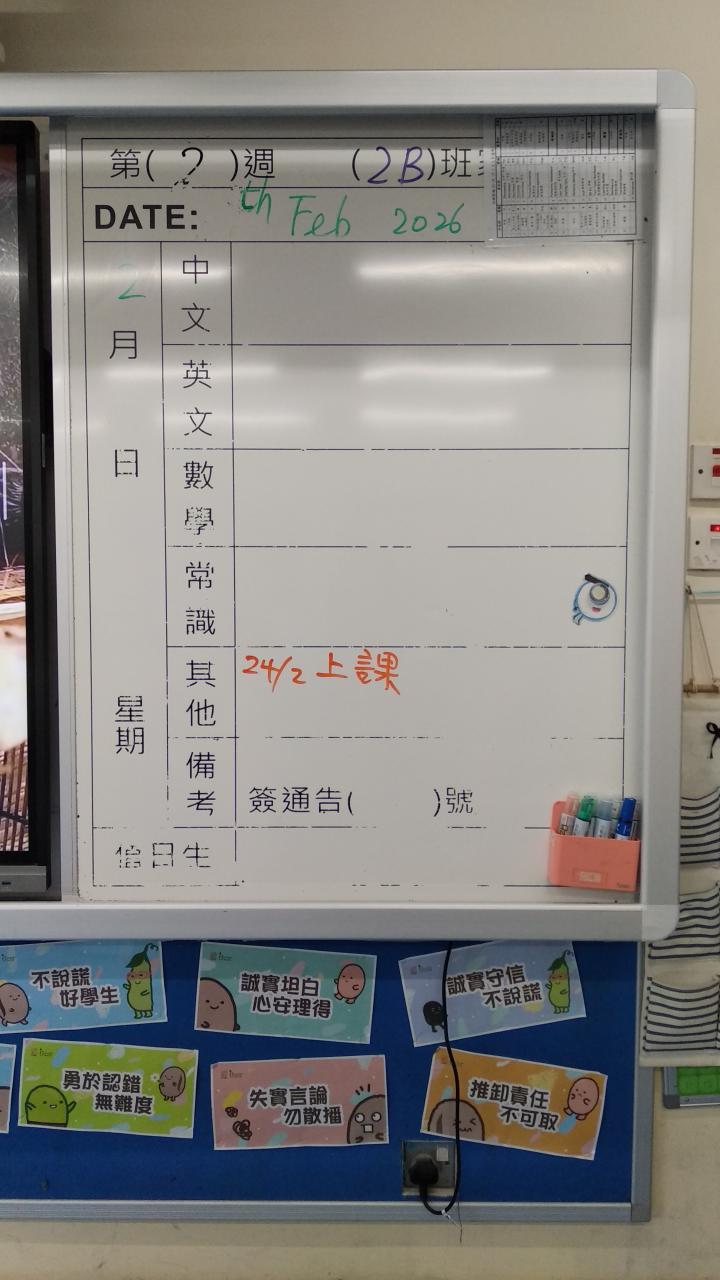 第( ? )週 (2B)班
DATE: th Feb 2026
2月 日 星期
中文
英文
數學
常識
其他 24/2 上課
備考 簽通告( )號
值日生
不說謊
好學生
誠實坦白
心安理得
誠實守信
不說謊
勇於認錯
無難度
失實言論
勿散播
推卸責任
不可取